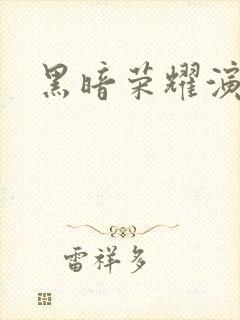 黑暗荣耀演
雷祥多